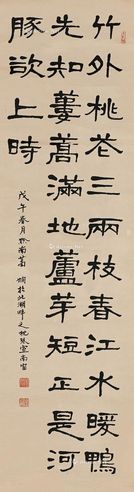 竹外桃花三兩枝春江水暖鴨
先知蔞蒿滿地蘆芽短正是河
豚欲上時
戊午春月於